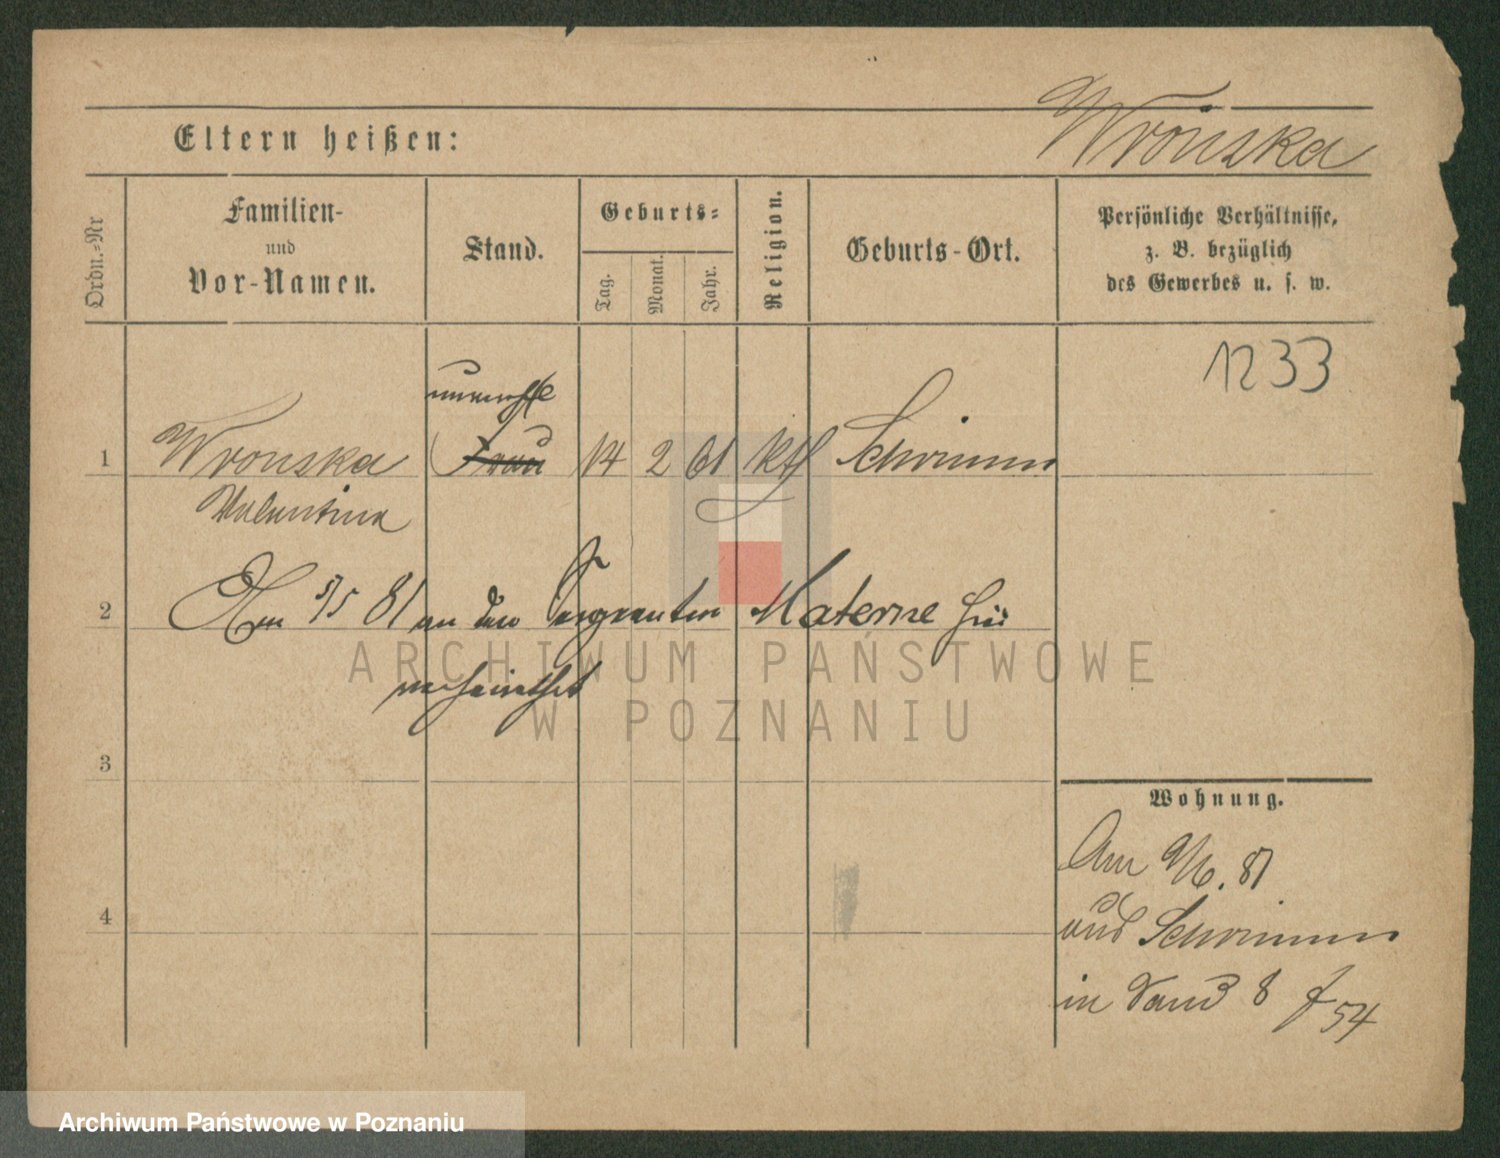 Wrońska
Eltern heißen:
Ordn.-Nr
Familien-
und
Vor-Namen.
Stand.
Geburts-
Tag.
Monat.
Jahr.
Religion.
Geburts-Ort.
Persönliche Verhältnisse,
z. B. bezüglich
des Gewerbes u. s. w.
1233
unverehl
1 Wronska Frau 14 2 61 kth Schrimm
Valentina
2 Am 5/5 81 an den Sergeanten Materne hier
verheirathet
ARCHIWUM PAŃSTWOWE
W POZNANIU
3
Wohnung.
4
Am 9/6. 81
aus Schrimm
in Sand 8 f 54
Archiwum Państwowe w Poznaniu